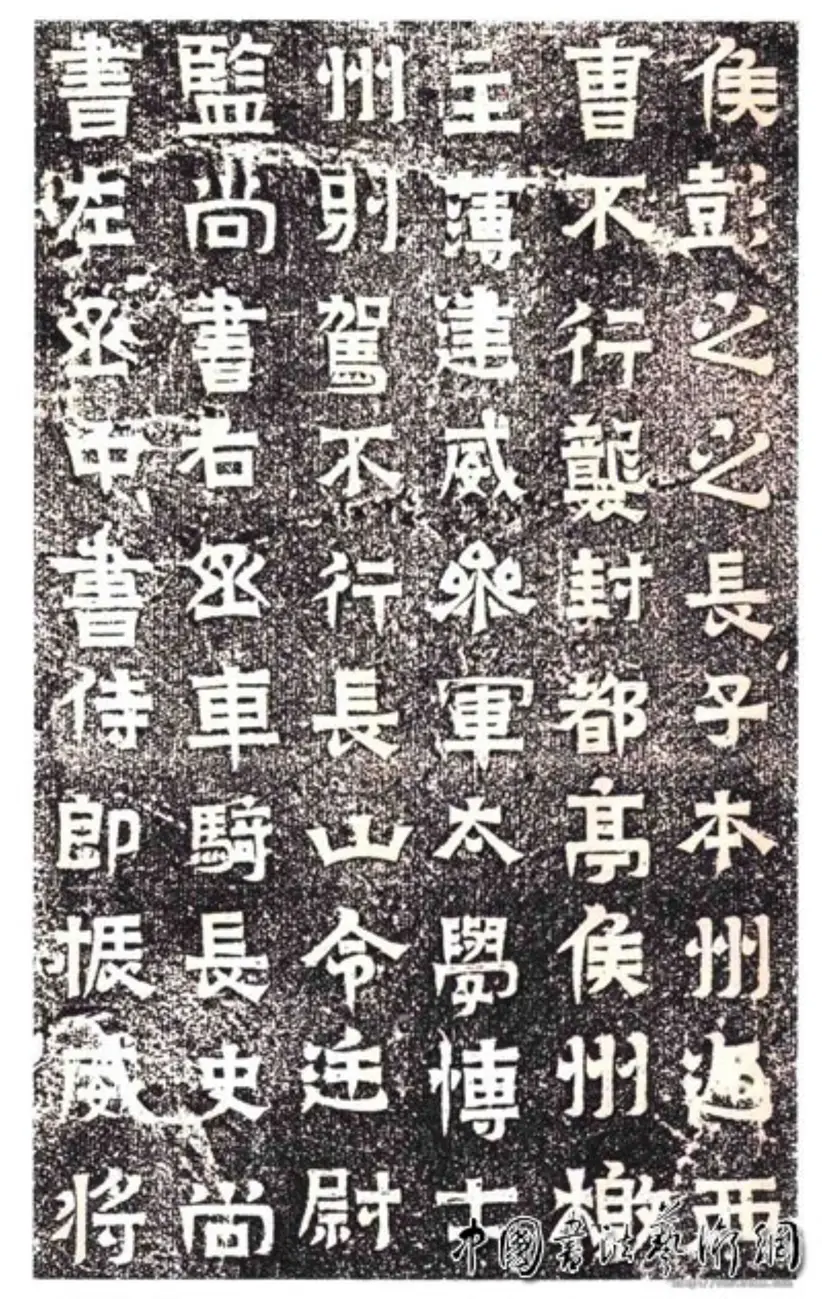 侯彭之之長子本州西
曹不行襲封都亭侯州檄
主薄建威參軍太學博士
州別駕不行長山令廷尉
監尚書右丞車騎長史尚
書左丞中書侍郎振威將
中國書法藝術網